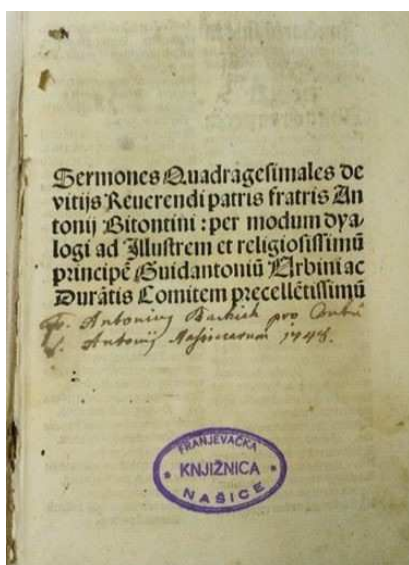 Sermones Quadragesimales de
vitijs Reuerendi patris fratris An
tonij Bitontini : per modum dya-
logi ad Illustrem et religiosissimū
principē Guidantoniū Urbini ac
Durātis Comitem precellētissimū
Fr. Antonius pro
S. Antonij
FRANJEVAČKA
KNJIŽNICA
NAŠICE